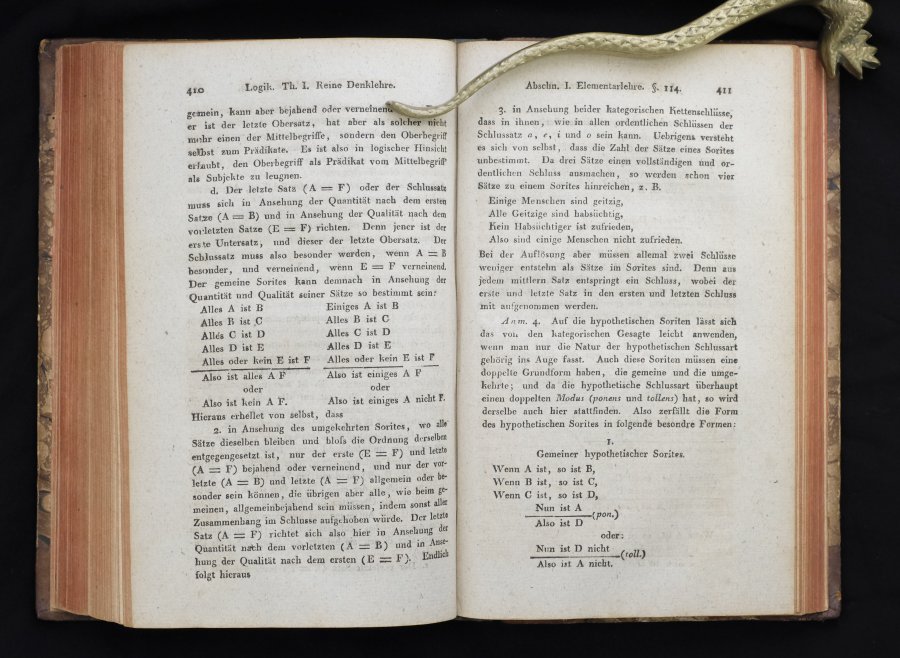 410 Logik. Th. I. Reine Denklehre.
gemein, kann aber bejahend oder verneinend
er ist der letzte Obersatz, hat aber als solcher nicht
mehr einen der Mittelbegriffe, sondern den Oberbegriff
selbst zum Prädikate. Es ist also in logischer Hinsicht
erlaubt, den Oberbegriff als Prädikat vom Mittelbegriff
als Subjekte zu leugnen.
d. Der letzte Satz (A = F) oder der Schlusssatz
muss sich in Ansehung der Quantität nach dem ersten
Satze (A = B) und in Ansehung der Qualität nach dem
vorletzten Satze (E = F) richten. Denn jener ist der
erste Untersatz, und dieser der letzte Obersatz. Der
Schlusssatz muss also besonder werden, wenn A = B
besonder, und verneinend, wenn E = F verneinend.
Der gemeine Sorites kann demnach in Ansehung der
Quantität und Qualität seiner Sätze so bestimmt sein:
Alles A ist B Einiges A ist B
Alles B ist C Alles B ist C
Alles C ist D Alles C ist D
Alles D ist E Alles D ist E
Alles oder kein E ist F Alles oder kein E ist F
Also ist alles A F Also ist einiges A F
oder oder
Also ist kein A F. Also ist einiges A nicht F.
Hieraus erhellet von selbst, dass
2. in Ansehung des umgekehrten Sorites, wo alle
Sätze dieselben bleiben und bloſs die Ordnung derselben
entgegengesetzt ist, nur der erste (E = F) und letzte
(A = F) bejahend oder verneinend, und nur der vor-
letzte (A = B) und letzte (A = F) allgemein oder be-
sonder sein können, die übrigen aber alle, wie beim ge-
meinen, allgemeinbejahend sein müssen, indem sonst aller
Zusammenhang im Schlusse aufgehoben würde. Der letzte
Satz (A = F) richtet sich also hier in Ansehung der
Quantität nach dem vorletzten (A = B) und in Anse-
hung der Qualität nach dem ersten (E = F). Endlich
folgt hieraus
Abschn. I. Elementarlehre. §. 114. 411
3. in Ansehung beider kategorischen Kettenschlüsse,
dass in ihnen, wie in allen ordentlichen Schlüssen der
Schlusssatz a, e, i und o sein kann. Uebrigens versteht
es sich von selbst, dass die Zahl der Sätze eines Sorites
unbestimmt. Da drei Sätze einen vollständigen und or-
dentlichen Schluss ausmachen, so werden schon vier
Sätze zu einem Sorites hinreichen, z. B.
Einige Menschen sind geitzig,
Alle Geitzige sind habsüchtig,
Kein Habsüchtiger ist zufrieden,
Also sind einige Menschen nicht zufrieden.
Bei der Auflösung aber müssen allemal zwei Schlüsse
weniger entstehn als Sätze im Sorites sind. Denn aus
jedem mittlern Satz entspringt ein Schluss, wobei der
erste und letzte Satz in den ersten und letzten Schluss
mit aufgenommen werden.
Anm. 4. Auf die hypothetischen Soriten lässt sich
das von den kategorischen Gesagte leicht anwenden,
wenn man nur die Natur der hypothetischen Schlussart
gehörig ins Auge fasst. Auch diese Soriten müssen eine
doppelte Grundform haben, die gemeine und die umge-
kehrte; und da die hypothetische Schlussart überhaupt
einen doppelten Modus (ponens und tollens) hat, so wird
derselbe auch hier stattfinden. Also zerfällt die Form
des hypothetischen Sorites in folgende besondre Formen:
1.
Gemeiner hypothetischer Sorites.
Wenn A ist, so ist B,
Wenn B ist, so ist C,
Wenn C ist, so ist D,
Nun ist A
(pon.)
Also ist D
oder:
Nun ist D nicht
(toll.)
Also ist A nicht.